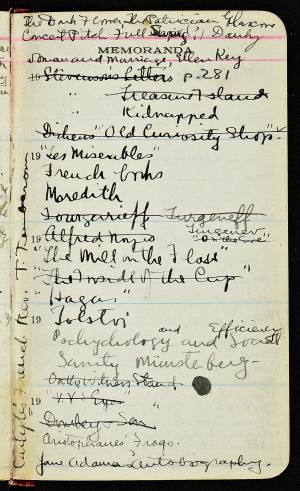 The Dark Flower, The Patrician
Concert Pitch Full Swing / Danby
MEMORANDA
Woman and Marriage, Ellen Key
19 Stevenson's Letters p. 281
" Treasure Island
" Kidnapped
Dickens "Old Curiosity Shop" ✓
19 "Les Miserables"
French books
Meredith
Tourgenieff Turgeneff
19 Alfred Noyes Turgenev
"On the Eve"
"The Mill on the Floss"
"The Inside of the Cup"
"Hagar"
19 Tolstoi
and Efficiency
Psychology and Social
Sanity Münsterberg -
On the Witness Stand.
19 "V.V.'s Eyes"
Dombey & Son
Aristophanes' Frogs.
Jane Adams' Autobiography.
Carlyle's French Rev. T. Tembarom